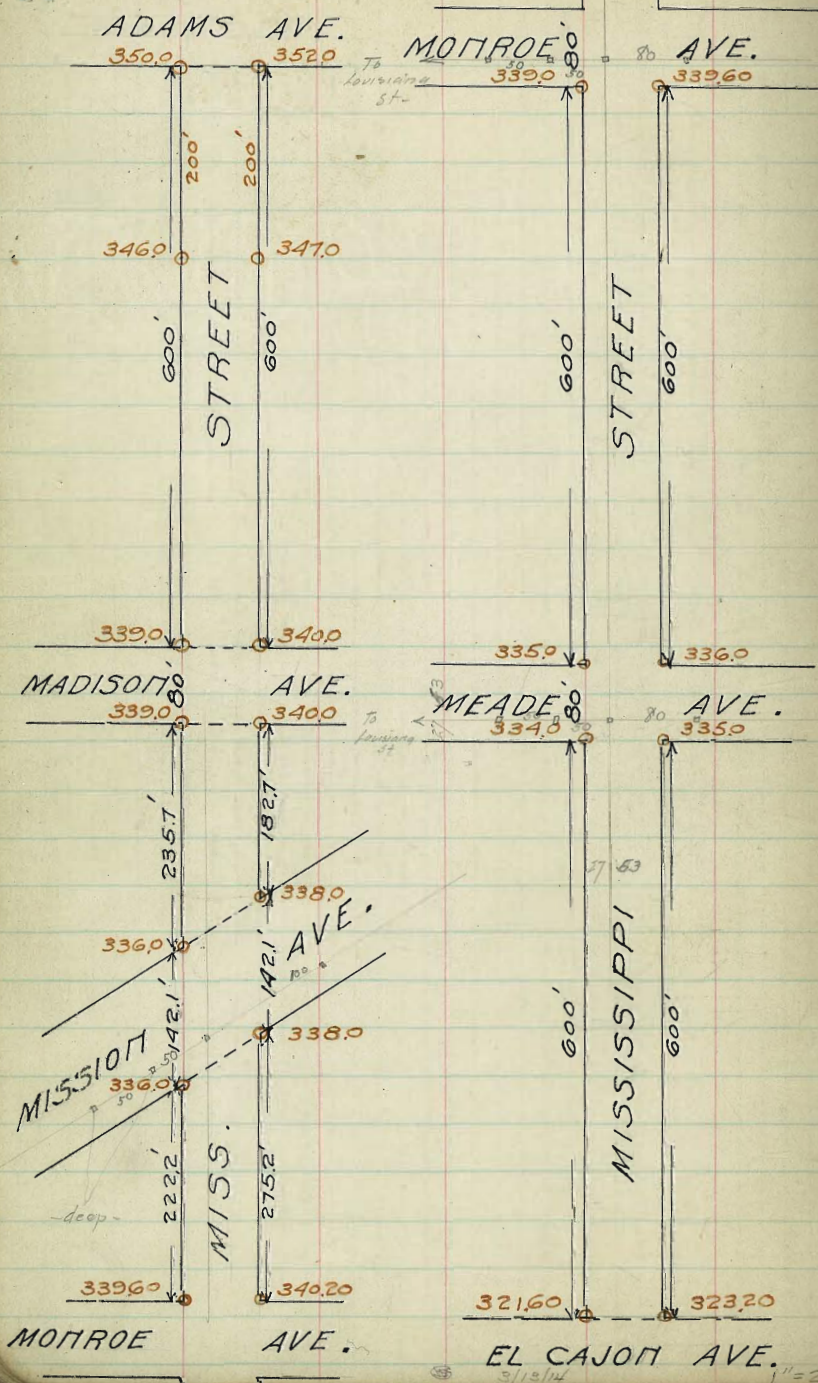 ADAMS AVE.
350.0 352.0
To
Louisiana
St-
200' 200'
346.0 347.0
600' STREET 600'
339.0 340.0
MADISON 80' AVE.
339.0 340.0
To
Louisiana
St
235.7' 182.7'
338.0
336.0 142.1' AVE.
100
142.1' 338.0
MISSION 50
336.0
50
222.2' MISS. 275.2'
-deep-
339.60 340.20
MONROE AVE.
MONROE 80' AVE.
50 50 80
339.0 339.60
600' STREET 600'
335.0 336.0
MEADE 80' AVE.
50 80
334.0 335.0
27 53
600' MISSISSIPPI 600'
321.60 323.20
EL CAJON AVE.
3/13/14